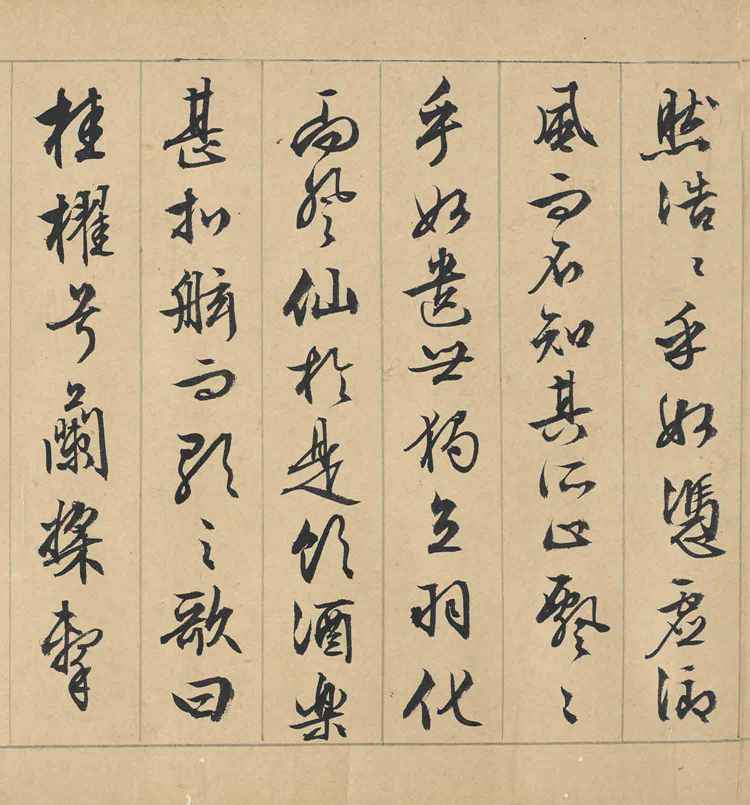 然浩〻乎如憑虛御
風而不知其所止飄〻
乎如遺世獨立羽化
而登仙於是飲酒樂
甚扣舷而歌之歌曰
桂櫂兮蘭槳擊